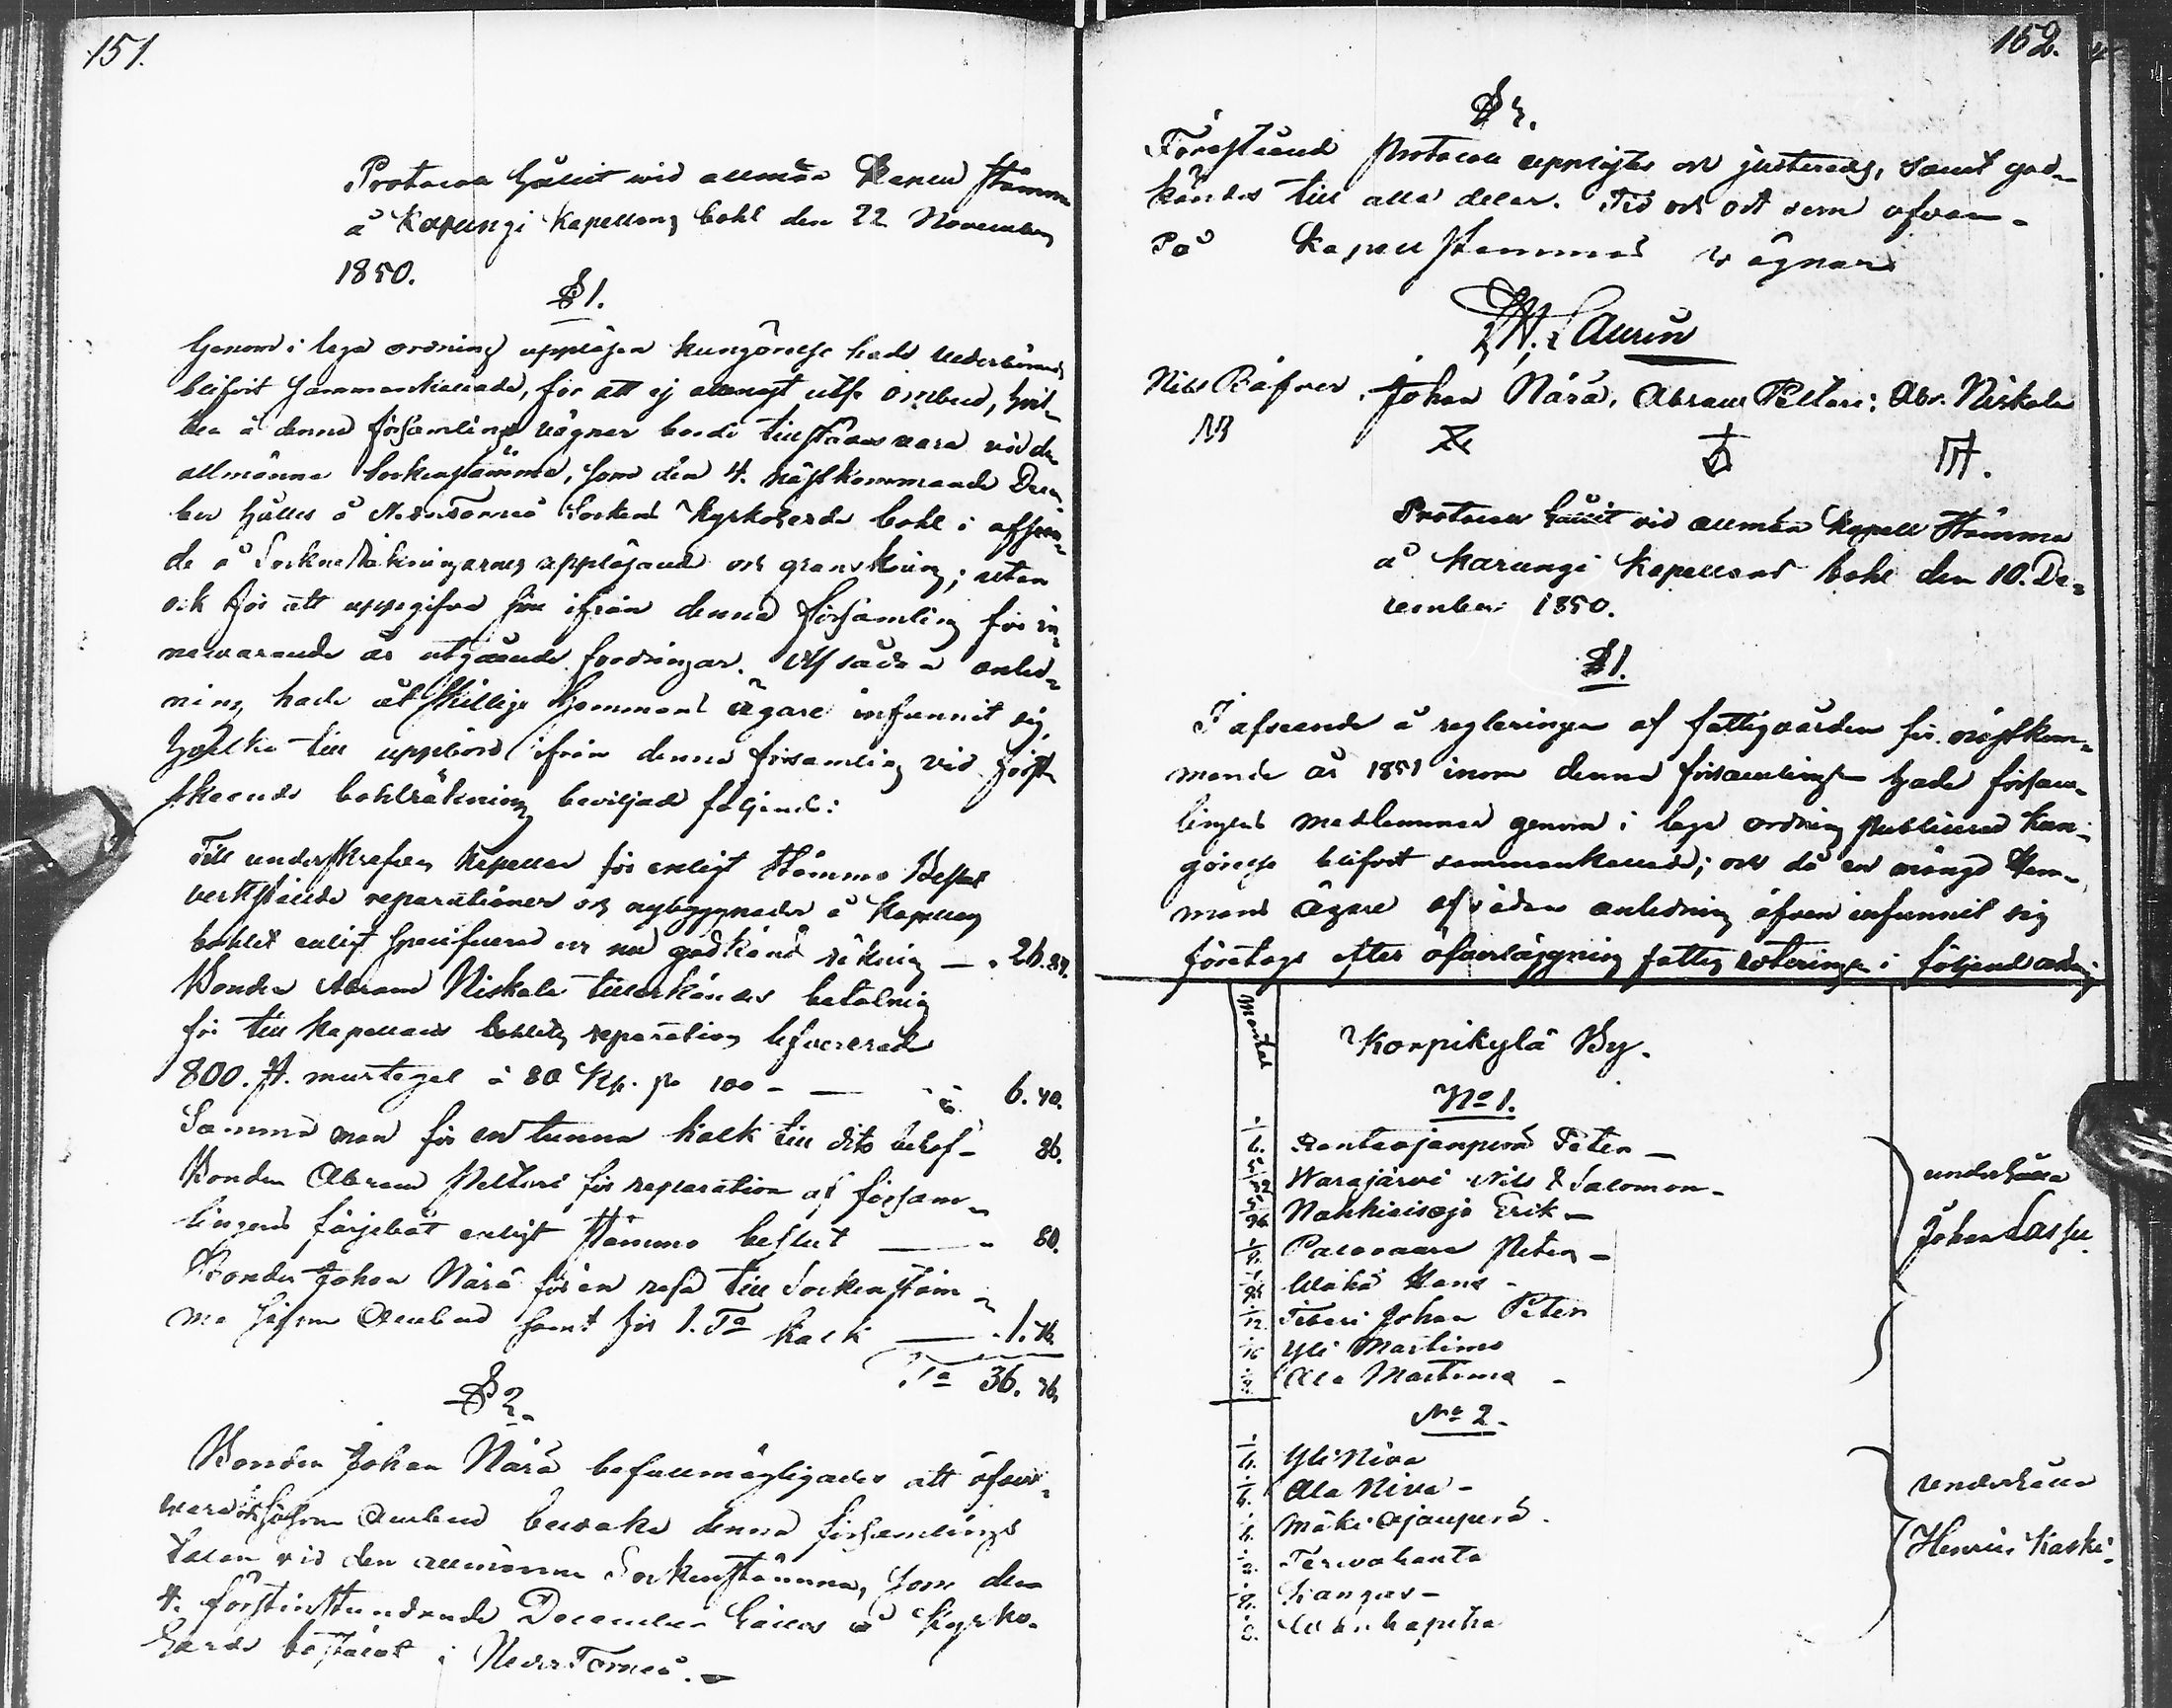 151.
Protocoll hållit wid allmän Kapell stämma
å Karungi Kapellans bohl den 22 November
1850.
§ 1.
Genom i laga ordning uppläsen kungörelse hade vederbörande
blifvit sammankallade, för att ej allenast utse ombud, hvil-
ka å denna församlings vägnar borde tillstädes vara vid den
allmänna Sockenstämma, som den 4. nästkommande Decem-
ber hålles å Neder Torneå Sockens Kyrkoherde bohl i afseen-
de å Sockneräkningarnes uppläsande och granskning; utan
ock för att uppgifva sina ifrån denna församling för in-
nevarande år utgående fordringar. Af sådan anled-
ning hade åtskillige Hemmans ägare infunnit sig,
hvilka till uppbörd ifrån denna församling vid först
skeende bohlräkning beviljade följande:
Till underskrefven Kapellan för enligt Stämmo Beslut
verkstälde reparationer och nybyggnader å Kapellans
bohlet enligt specificerad och nu godkänd räkning — 26.84.
Bonden Abram Niskala tillerkändes betalning
för till Kapellans bohlets reparation lefvererade
800. st. murtegel à 80 Kp. pr 100 - — 6. 40.
Samma man för en tunna kalk till dito behof - 86.
Bonden Abram Pelttari för reparation af försam-
lingens färjebåt enligt Stämmo beslut — 80.
Bonden Johan Närä för en resa till Sockenstäm-
ma såsom Ombud samt för 1. Ta kalk — 1.
Sa 36.
§ 2.
Bonden Johan Närä befullmägtigades att öfver-
vara och såsom Ombud bevaka denna församlings
talan vid den allmänna Sockenstämma, som den
4. förstinstundande December hålles å Kyrko-
herde bostället i Neder Torneå. —
152.
§ 3.
Förestående Protocoll upplästes och justerades, samt god-
kändes till alla delar. Tid och ort som ofvan -
På Kapell Stemmans vägnar
Laurin
Nils Räfver. Johan Närä, Abram Pelttari; Abr. Niskala
Protocoll hållit vid allmän Kapell Stämma
å Karungi Kapellans bohl den 10. De-
cember 1850.
§ 1.
I afseende å regleringen af fattigvården för nästkom-
mande år 1851 inom denna församling hade försam-
lingens medlemmar genom i laga ordning publicerad kun-
görelse blifvit sammankallade; och då en mängd Hem-
mans Ägare af sådan anledning äfven infunnit sig
företogs efter öfverläggning fattig roteringen i följande ordning
Mantal
Korpikylä By.
No 1.
Rantaojanperä Peter —
Warajärvi Nils & Salomon -
Nahkiaisoja Erik —
Palovaara Peter —
Wähä Hans -
Fiskari Johan Peter
Yli Martimo
Ala Martimo -
underhålla
Johan Lassu
No 2.
Yli Niva
Ala Niva -
Mäki Ojanperä -
Tervahauta
Kangas -
underhålla
Henric Kaski